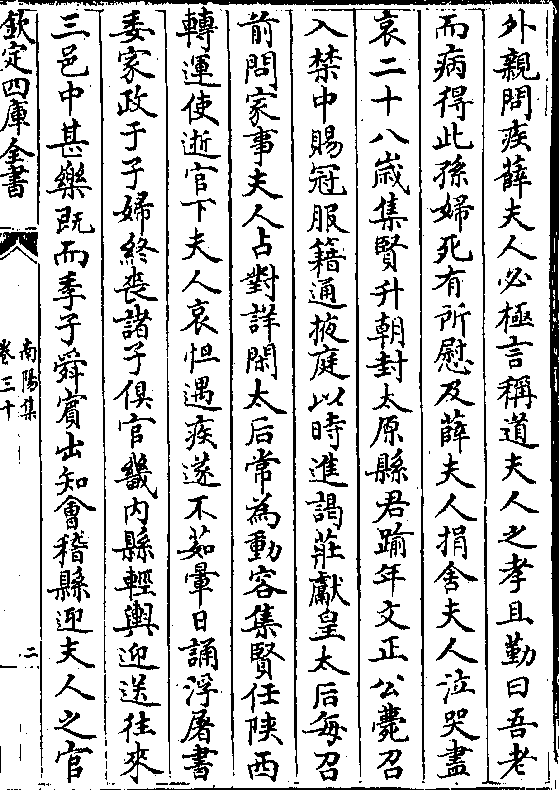 外親問疾薛夫人必極言稱道夫人之孝且勤曰吾老
而病得此孫婦死有所慰及薛夫人捐舍夫人泣哭盡
哀二十八歲集賢升朝封太原縣君踰年文正公薨召
入禁中賜冠服籍通掖庭以時進謁莊獻皇太后每召
前問家事夫人占對詳閑太后常為動容集賢任陝西
轉運使逝官下夫人哀怛遇疾遂不茹葷日誦浮屠書
委家政于子婦終喪諸子俱官畿內縣輕輿迎送往來
三邑中甚樂既而季子舜賔出知會稽縣迎夫人之官
欽定四庫全書
南陽集
卷三十
二